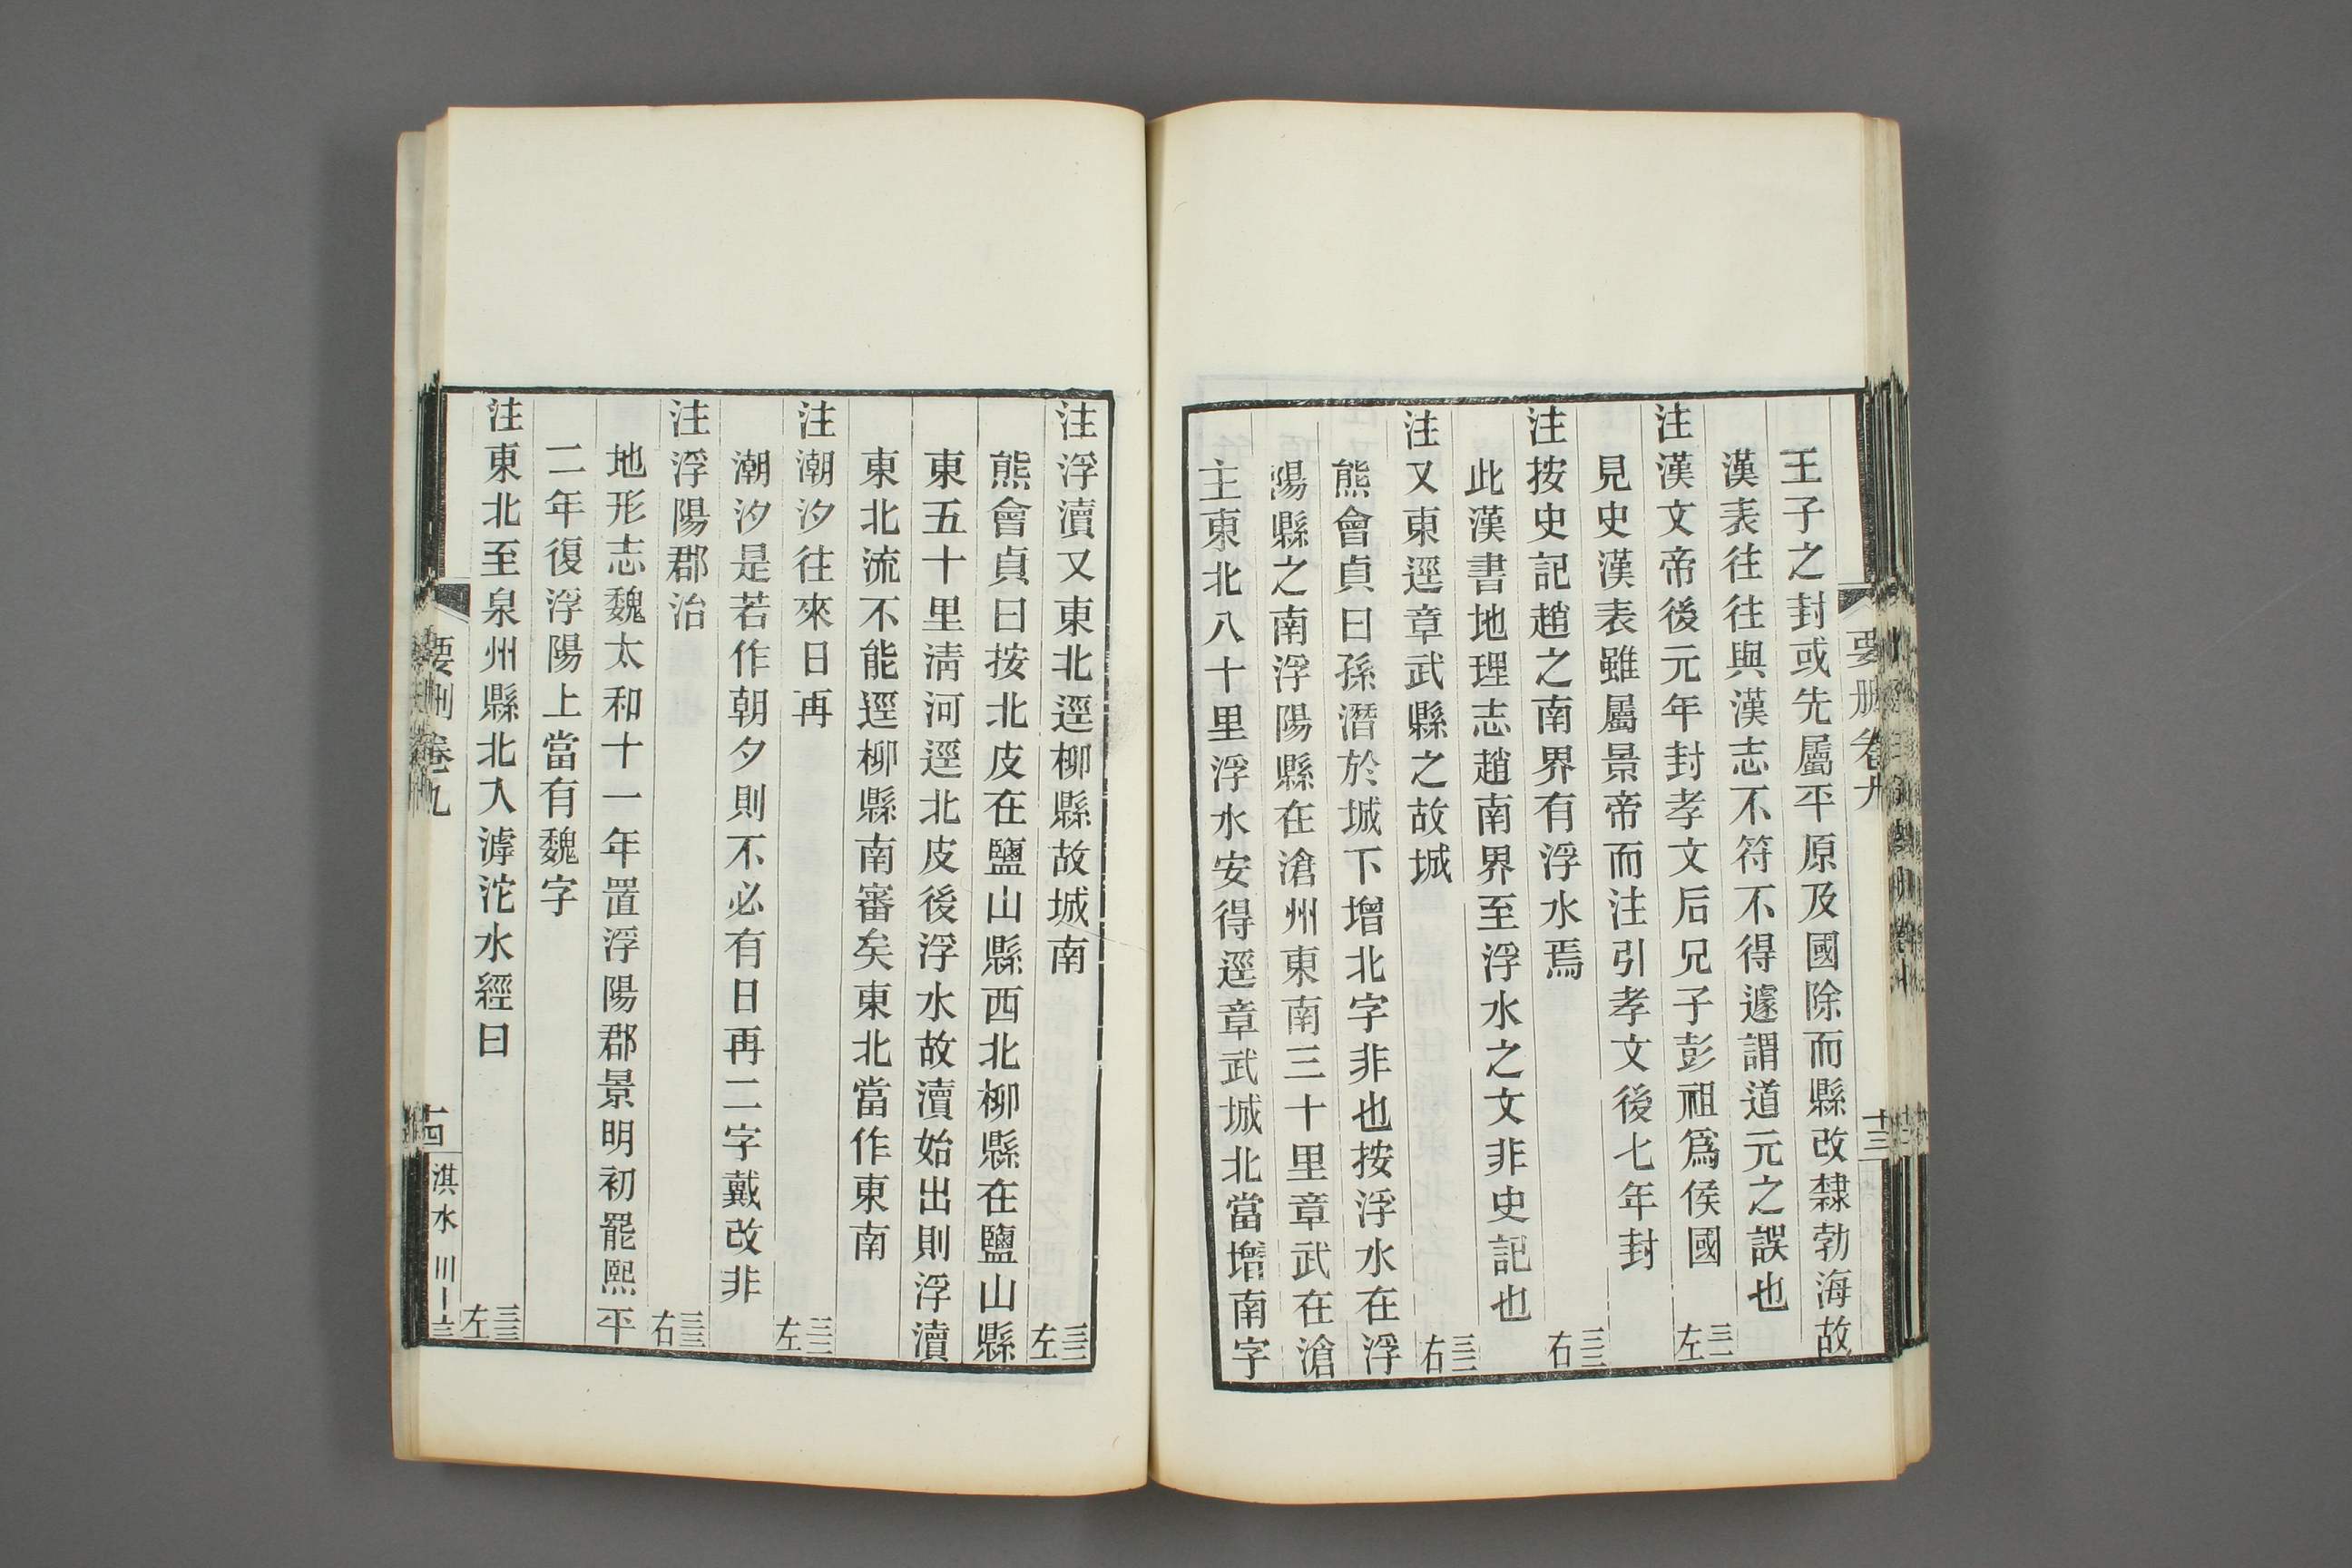 要刪卷九
十三
王子之封或先屬平原及國除而縣改隸勃海故
漢表往往與漢志不符不得遽謂道元之誤也
注漢文帝後元年封孝文后兄子彭祖爲侯國 三二左
見史漢表雖屬景帝而注引孝文後七年封
注按史記趙之南界有浮水焉 三二右
此漢書地理志趙南界至浮水之文非史記也
注又東逕章武縣之故城 三三右
熊會貞曰孫潛於城下增北字非也按浮水在浮
陽縣之南浮陽縣在滄州東南三十里章武在滄
主東北八十里浮水安得逕章武城北當增南字
注浮瀆又東北逕柳縣故城南 三三左
熊會貞曰按北皮在鹽山縣西北柳縣在鹽山縣
東五十里淸河逕北皮後浮水故瀆始出則浮瀆
東北流不能逕柳縣南審矣東北當作東南
注潮汐往來日再 三三左
潮汐是若作朝夕則不必有日再二字戴改非
注浮陽郡治 三三右
地形志魏太和十一年置浮陽郡景明初罷熙平
二年復浮陽上當有魏字
注東北至泉州縣北入滹沱水經曰 三三左
要刪卷九
十四
淇水